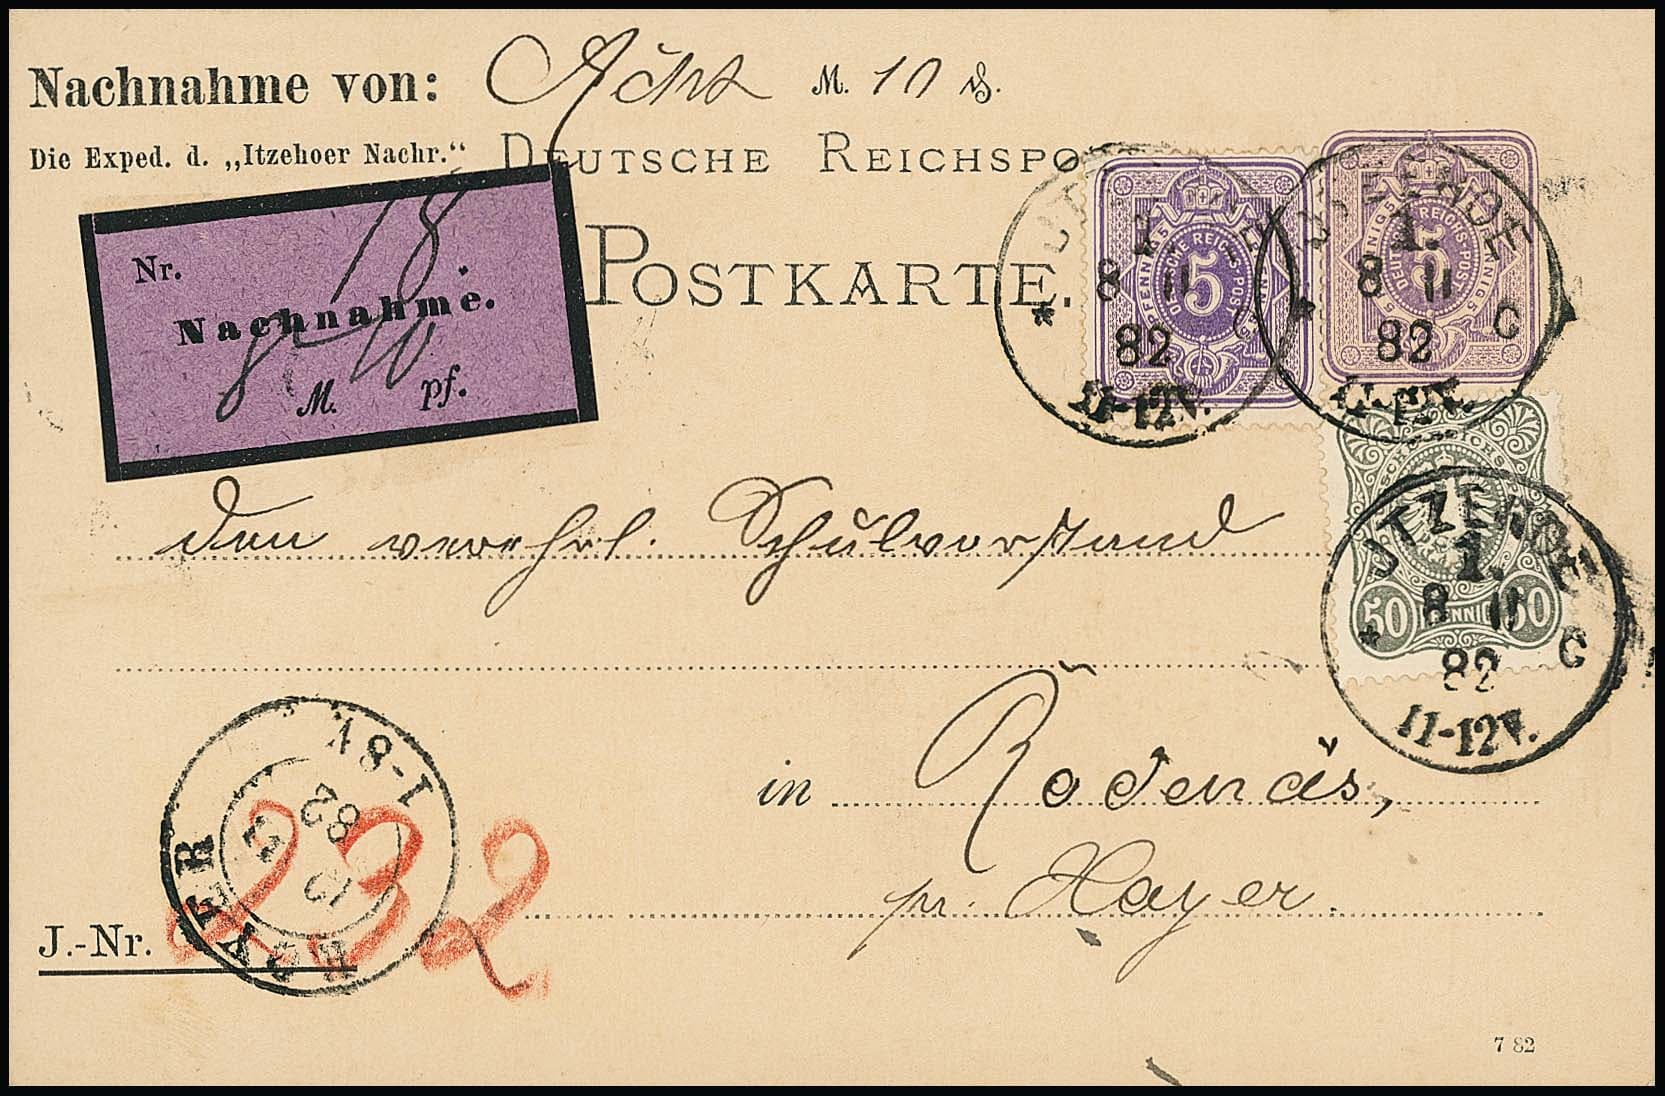 Nachnahme von: Acht M. 10 ₰.
Die Exped. d. „Itzehoer Nachr.“
DEUTSCHE REICHSPO
POSTKARTE.
Nr. 18
Nachnahme.
8 M. 10 pf.
5
11-12V.
8 11
82
DEUTSCHE REICHS-POST
5
PFENNIG
1.
8 11
82
C
ITZEHOE
1.
8 11
82
C
11-12V.
50 PFENNIG 50
den verehrl. Schulvorstand
in Rodenäs,
pr. Hoyer.
HOYER
82
1-8V.
J.-Nr. 232
7 82